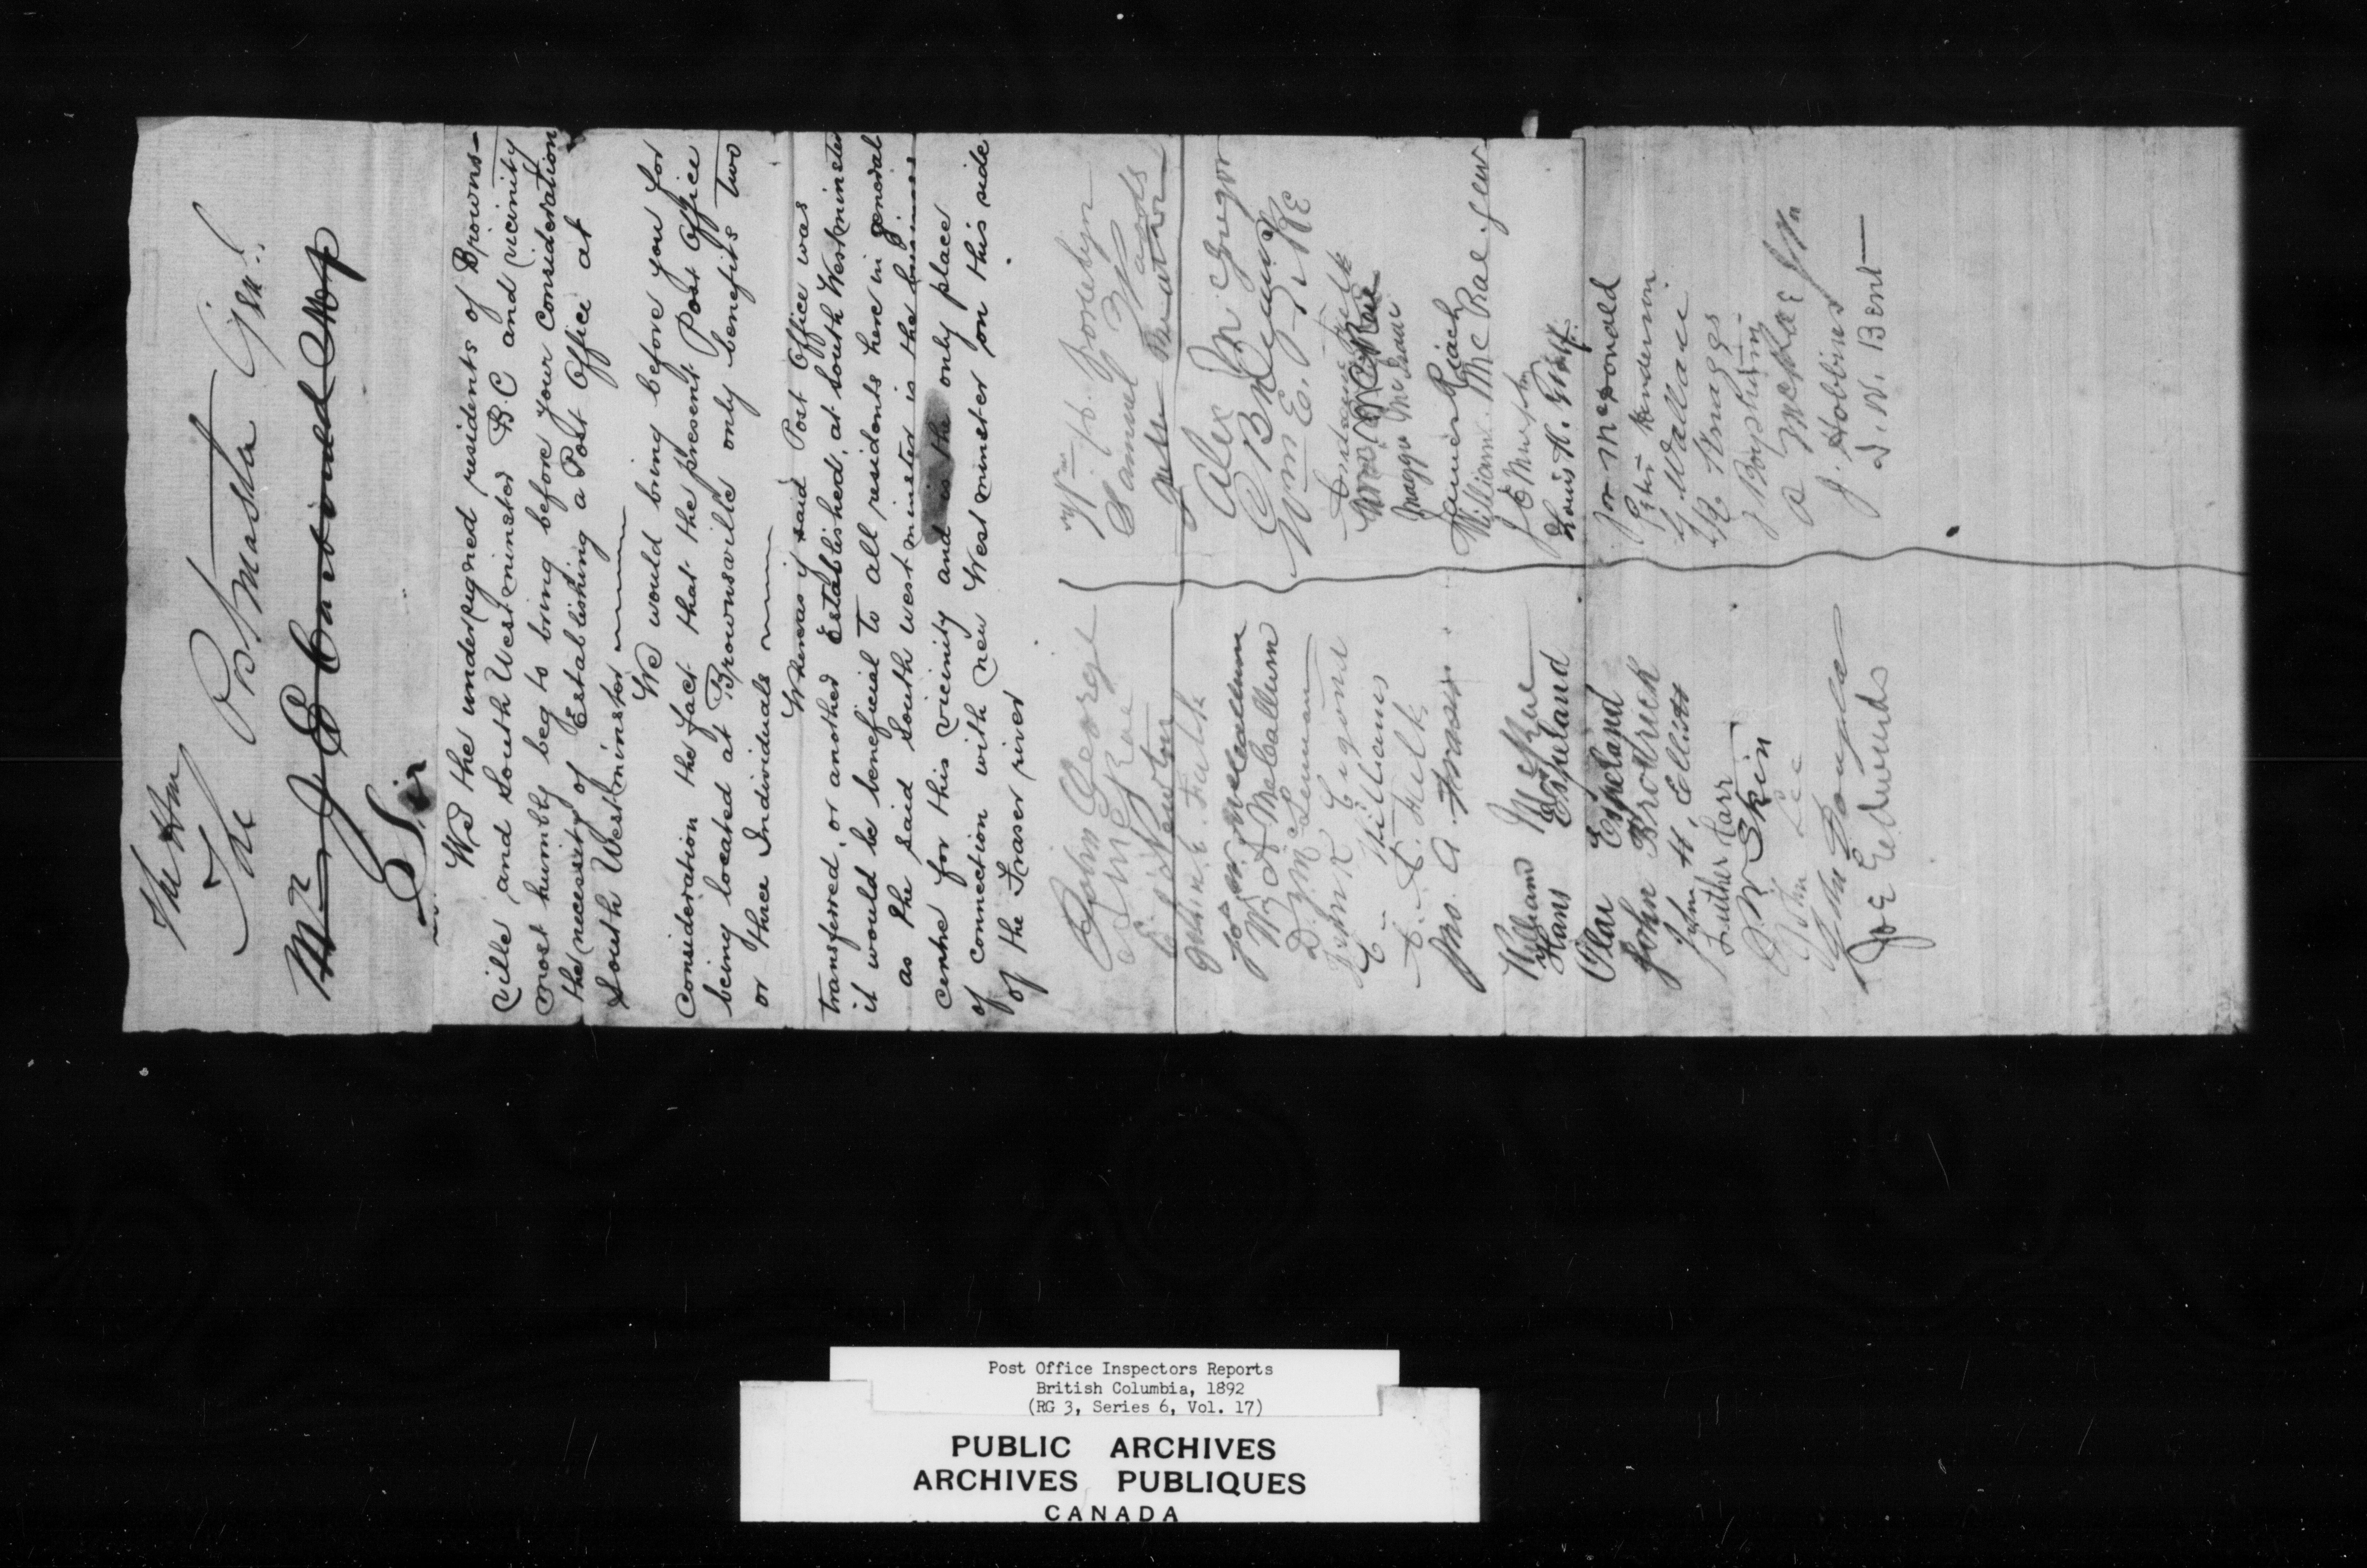 The Hon
The P Master Genl.
Mr J E Corbould M P
Sir
We the undersigned residents of Browns-
ville and South Westminster B.C and vicinity
most humbly beg to bring before your Consideration
the necessity of Establishing a Post Office at
South Westminster
We would bring before you for
Consideration the fact that the present Post Office
being located at Brownsville only benefits two
or three Individuals
Whereas if said Post Office was
transferred, or another Established, at South Westminster
it would be beneficial to all residents here in general
as the said South Westminster is the business
centre for this vicinity and is the only place
of connection with New Westminster on this side
of the Fraser river
Robin George
McRae
Newton
Falk
McCallum
W A McCallum
D. Mc
C. Williams
C. Falk
Jno. A. Fraser
William McRae
Hans Espeland
Olai Espeland
John Brottrick
John H. Elliott
Luther Carr
Skin
John Lee
John Douglas
Joe Edwards
Samuel Woods
Alex McGregor
Wm E. Pike
Maggie McIsaac
James Reach
William McRae. Senr
Louis H. Goff.
Jon McDonald
Peter Henderson
G. Wallace
R. Knaggs
J Boy
A McRae Jn
J. Hobbins
D. W. Bent
Post Office Inspectors Reports
British Columbia, 1892
(RG 3, Series 6, Vol. 17)
PUBLIC ARCHIVES
ARCHIVES PUBLIQUES
CANADA